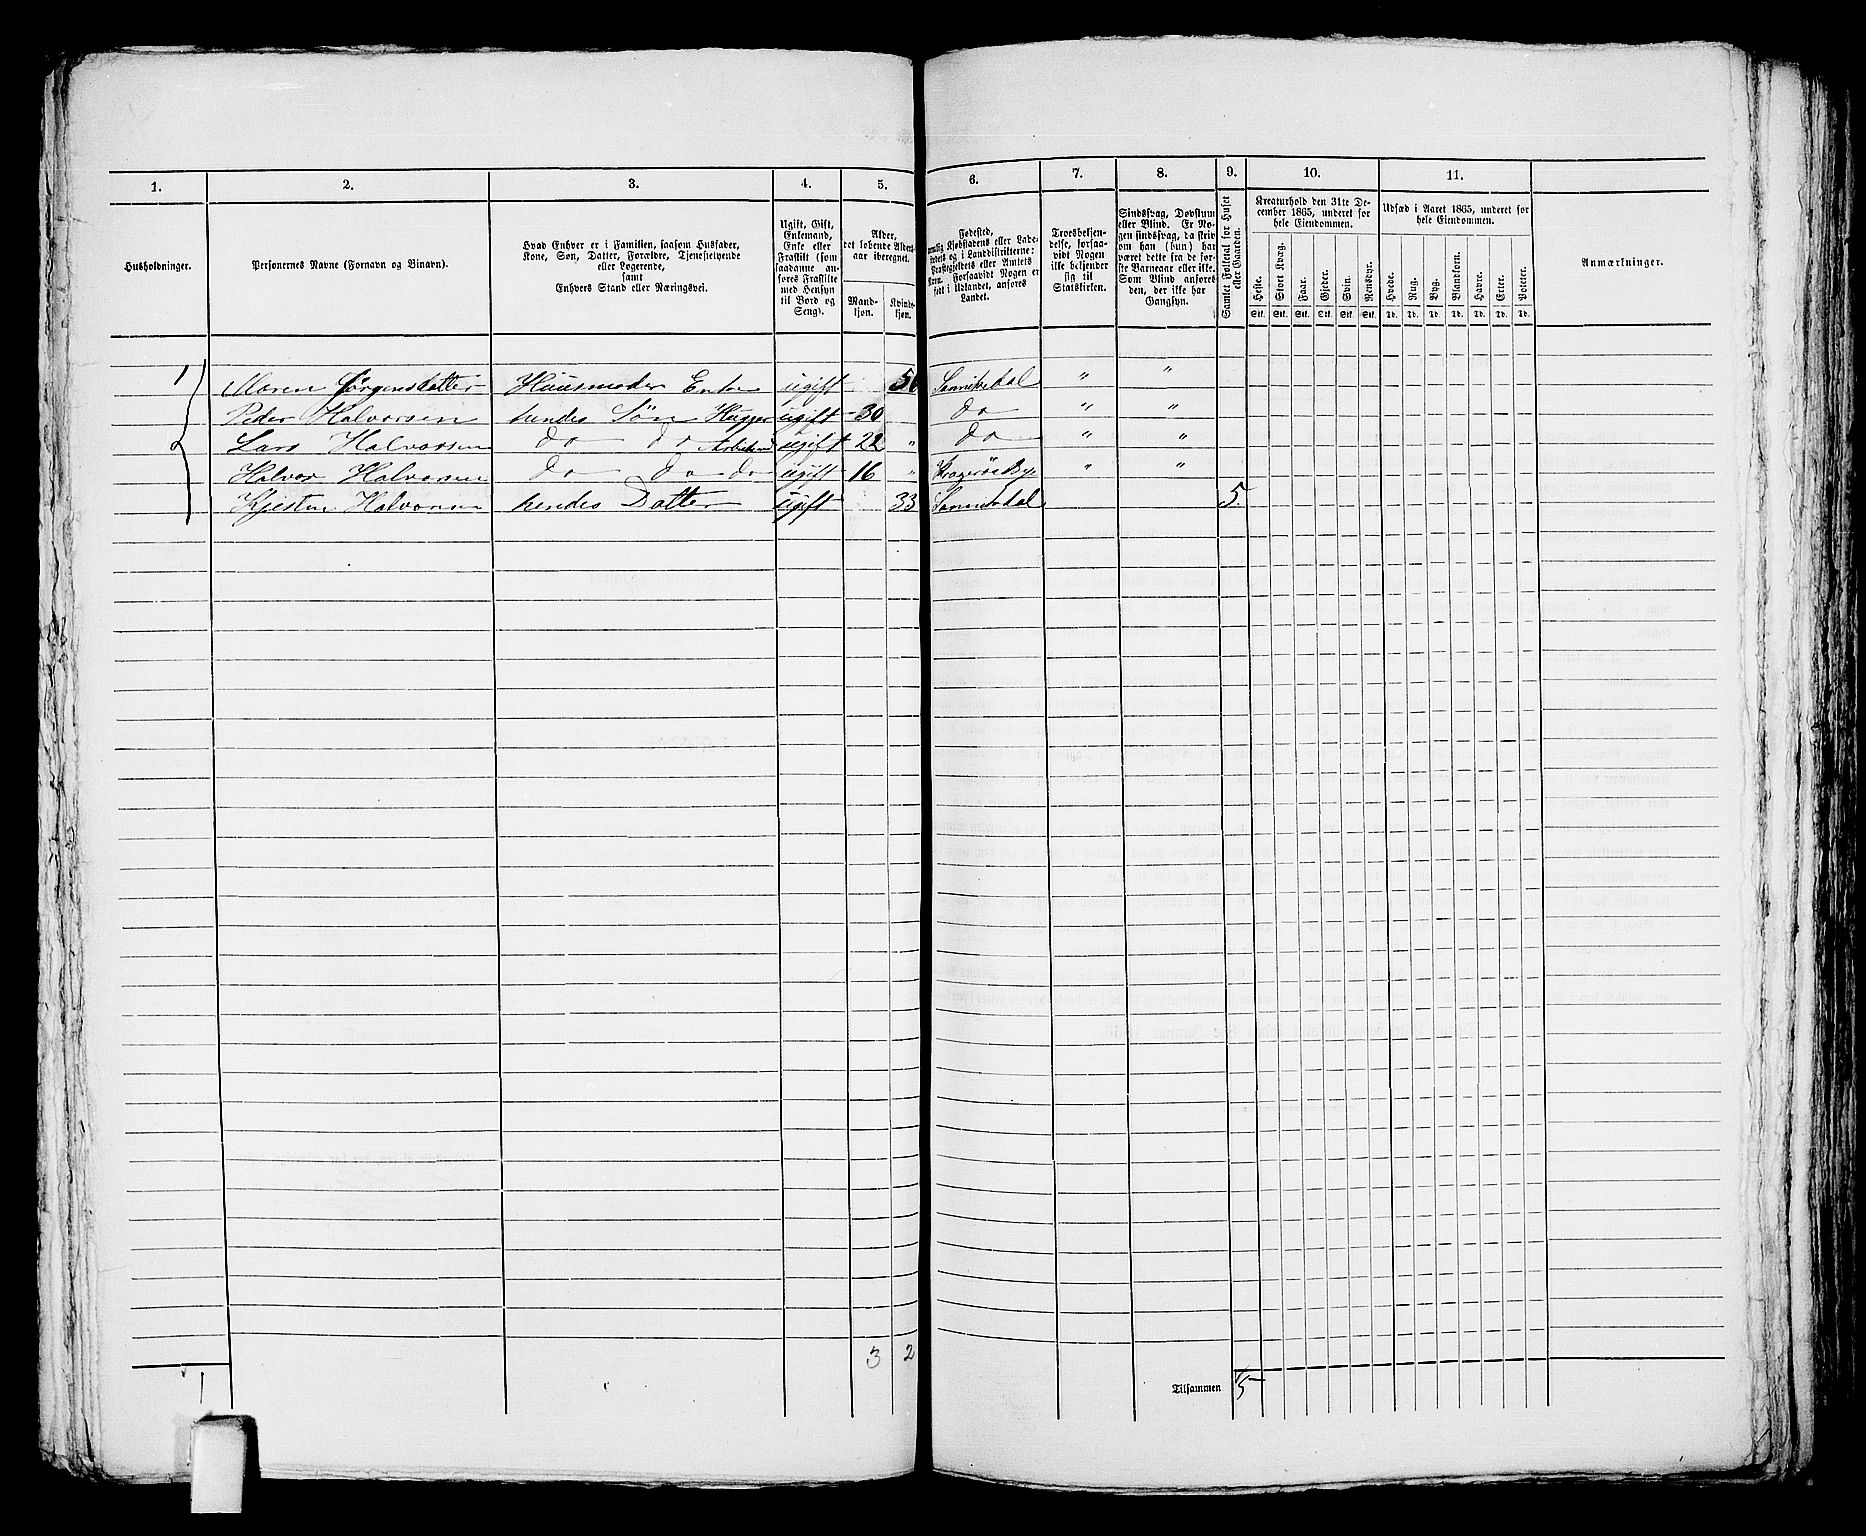 1. 2. 3. 4. 5. 6. 7. 8. 9. 10. 11.
Husholdninger.
Personernes Navne (Fornavn og Binavn).
Hvad Enhver er i Familien, saasom Husfader,
Kone, Søn, Datter, Forældre, Tjenestetyende
eller Logerende,
samt
Enhvers Stand eller Næringsvei.
Ugift, Gift,
Enkemand,
Enke eller
Fraskilt (som
saadanne an-
føres Fraskilte
med Hensyn
til Bord og
Seng).
Alder,
det løbende Alders-
aar iberegnet.
Mand-
kjøn.
Kvinde-
kjøn.
Fødested,
nemlig Kjøbstadens eller Lade-
stedets og i Landdistrikterne:
Præstegjeldets eller Amtets
Navn. Forsaavidt Nogen er
født i Udlandet, anføres
Landet.
Troesbekjen-
delse, forsaa-
vidt Nogen
ikke bekjender
sig til
Statskirken.
Sindssvag, Døvstum
eller Blind. Er No-
gen sindssvag, da skriv
om han (hun) har
været dette fra de før-
ste Barneaar eller ikke.
Som Blind anføres
den, der ikke har
Gangsyn.
Samlet Folketal for Huset
eller Gaarden.
Kreaturhold den 31te De-
cember 1865, underet for
hele Eiendommen.
Heste. Stort Kvæg. Faar. Gjeder. Svin. Rensdyr.
Stk. Stk. Stk. Stk. Stk. Stk.
Udsæd i Aaret 1865, underet for
hele Eiendommen.
Hvede. Rug. Byg. Blandkorn. Havre. Erter. Poteter.
Td. Td. Td. Td. Td. Td. Td.
Anmærkninger.
1 Maren Jørgensdatter Huusmoder Enke ugift 56 Sannikedal " "
Peder Halvorsen hendes Søn ugift 30 do " "
Lars Halvorsen do do ugift 22 " do " "
Halvor Halvorsen do do do ugift 16 " Kragerøe By " "
Kjesten Halvorsen hendes Datter ugift 33 Sannikedal 5
3 2
1 Tilsammen 5